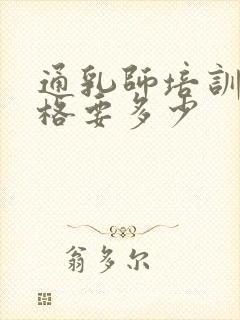 通乳師培訓
格要多少
翁多尔